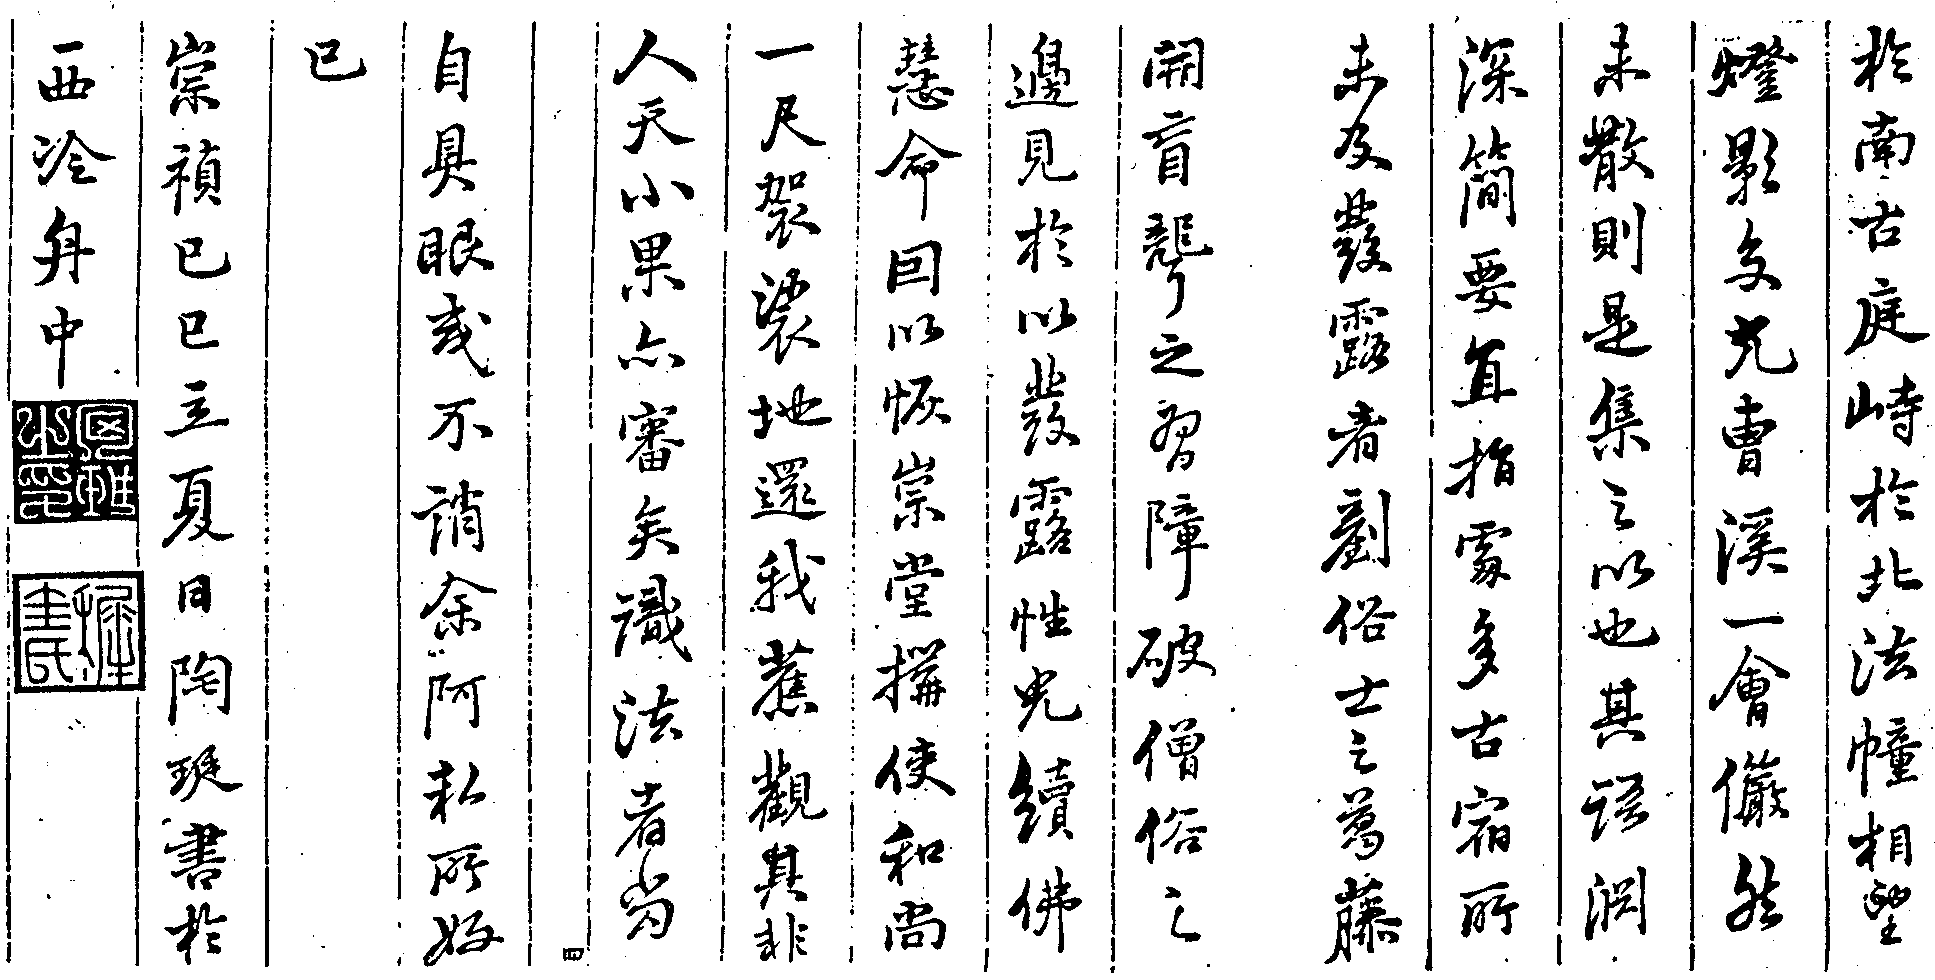 於南古庭峙於北法幢相望
燈影交光曹溪一會儼然
未散則是集之以也其語淵
深簡要直指處多古宿所
未及發露者劉俗士之葛藤
開盲聾之翳障破僧俗之
邊見於以發露性光續佛
慧命回以恢崇堂搆使和尚
一尺袈裟地還我舊觀其非
人天小果亦審矣識法者尚
自具眼或不誚余阿私所好
已
崇禎己巳立夏日陶珽書於
西泠舟中
四